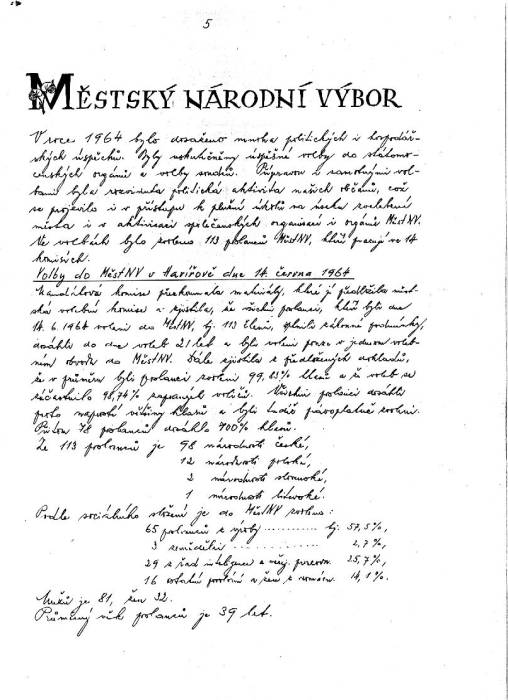 5
MĚSTSKÝ NÁRODNÍ VÝBOR
V roce 1964 bylo dosaženo mnoha politických i hospodář-
ských úspěchů. Byly uskutečněny úspěšné volby do státomo-
cenských orgánů a volby soudců. Přípravou i samotnými vol-
bami byla rozvinuta politická aktivita našich občanů, což
se projevilo i v přístupu k plnění úkolů na úseku zvelebení
města i v aktivizaci společenských organisací i orgánů MěstNV.
Ve volbách bylo zvoleno 113 poslanců MěstNV, kteří pracují ve 14
komisích.
Volby do MěstNV v Havířově dne 14. června 1964
Mandátová komise přezkoumala materiály, které jí předložila měst-
ská volební komise a zjistila, že všichni poslanci, kteří byli dne
14. 6. 1964 voleni do MěstNV, tj. 113 členů, splnili zákonné podmínky,
dosáhli do dne voleb 21 let a byli voleni pouze v jednom voleb-
ním obvodu do MěstNV. Dále zjistila z předložených dokladů,
že v průměru byli poslanci zvoleni 99,83% hlasů a že voleb se
zúčastnilo 98,74% zapsaných voličů. Všichni poslanci dosáhli
proto naprosté většiny hlasů a byli tudíž právoplatně zvoleni.
Přitom 78 poslanců dosáhlo 100% hlasů.
Ze 113 poslanců je 98 národnosti české,
12 národnosti polské,
2 národnosti slovenské,
1 národnosti litevské.
Podle sociálního složení je do MěstNV zvoleno:
65 poslanců z výroby ........... tj. 57,5%,
3 zemědělci ................ 2,7%,
29 z řad inteligence a veřej. pracovn. 25,7%,
16 ostatní povolání a žen z domácn. 14,1%.
Mužů je 81, žen 32.
Průměrný věk poslanců je 39 let.